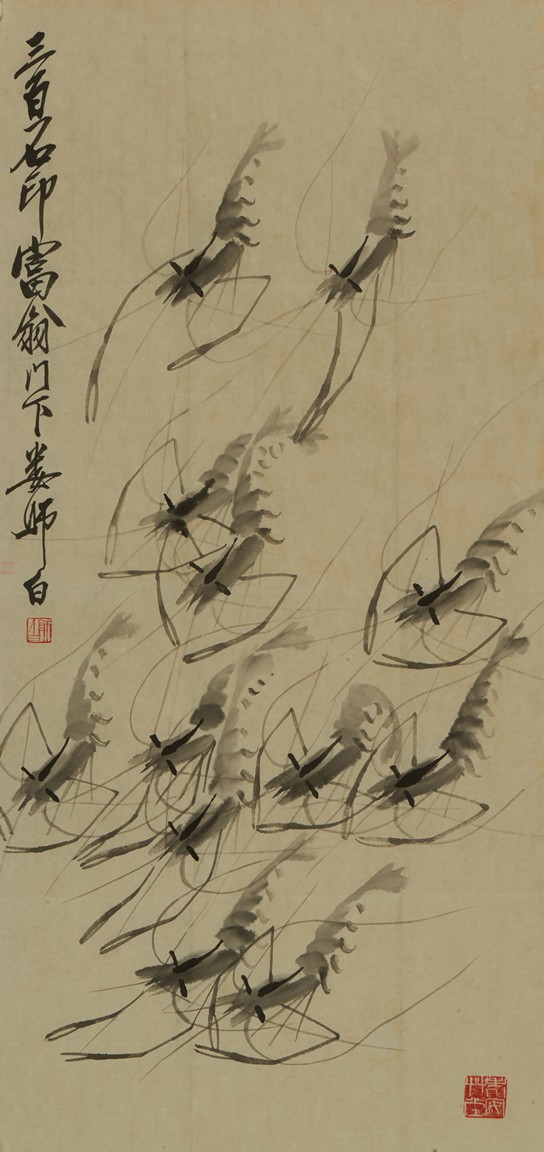 三百石印富翁门下娄师白